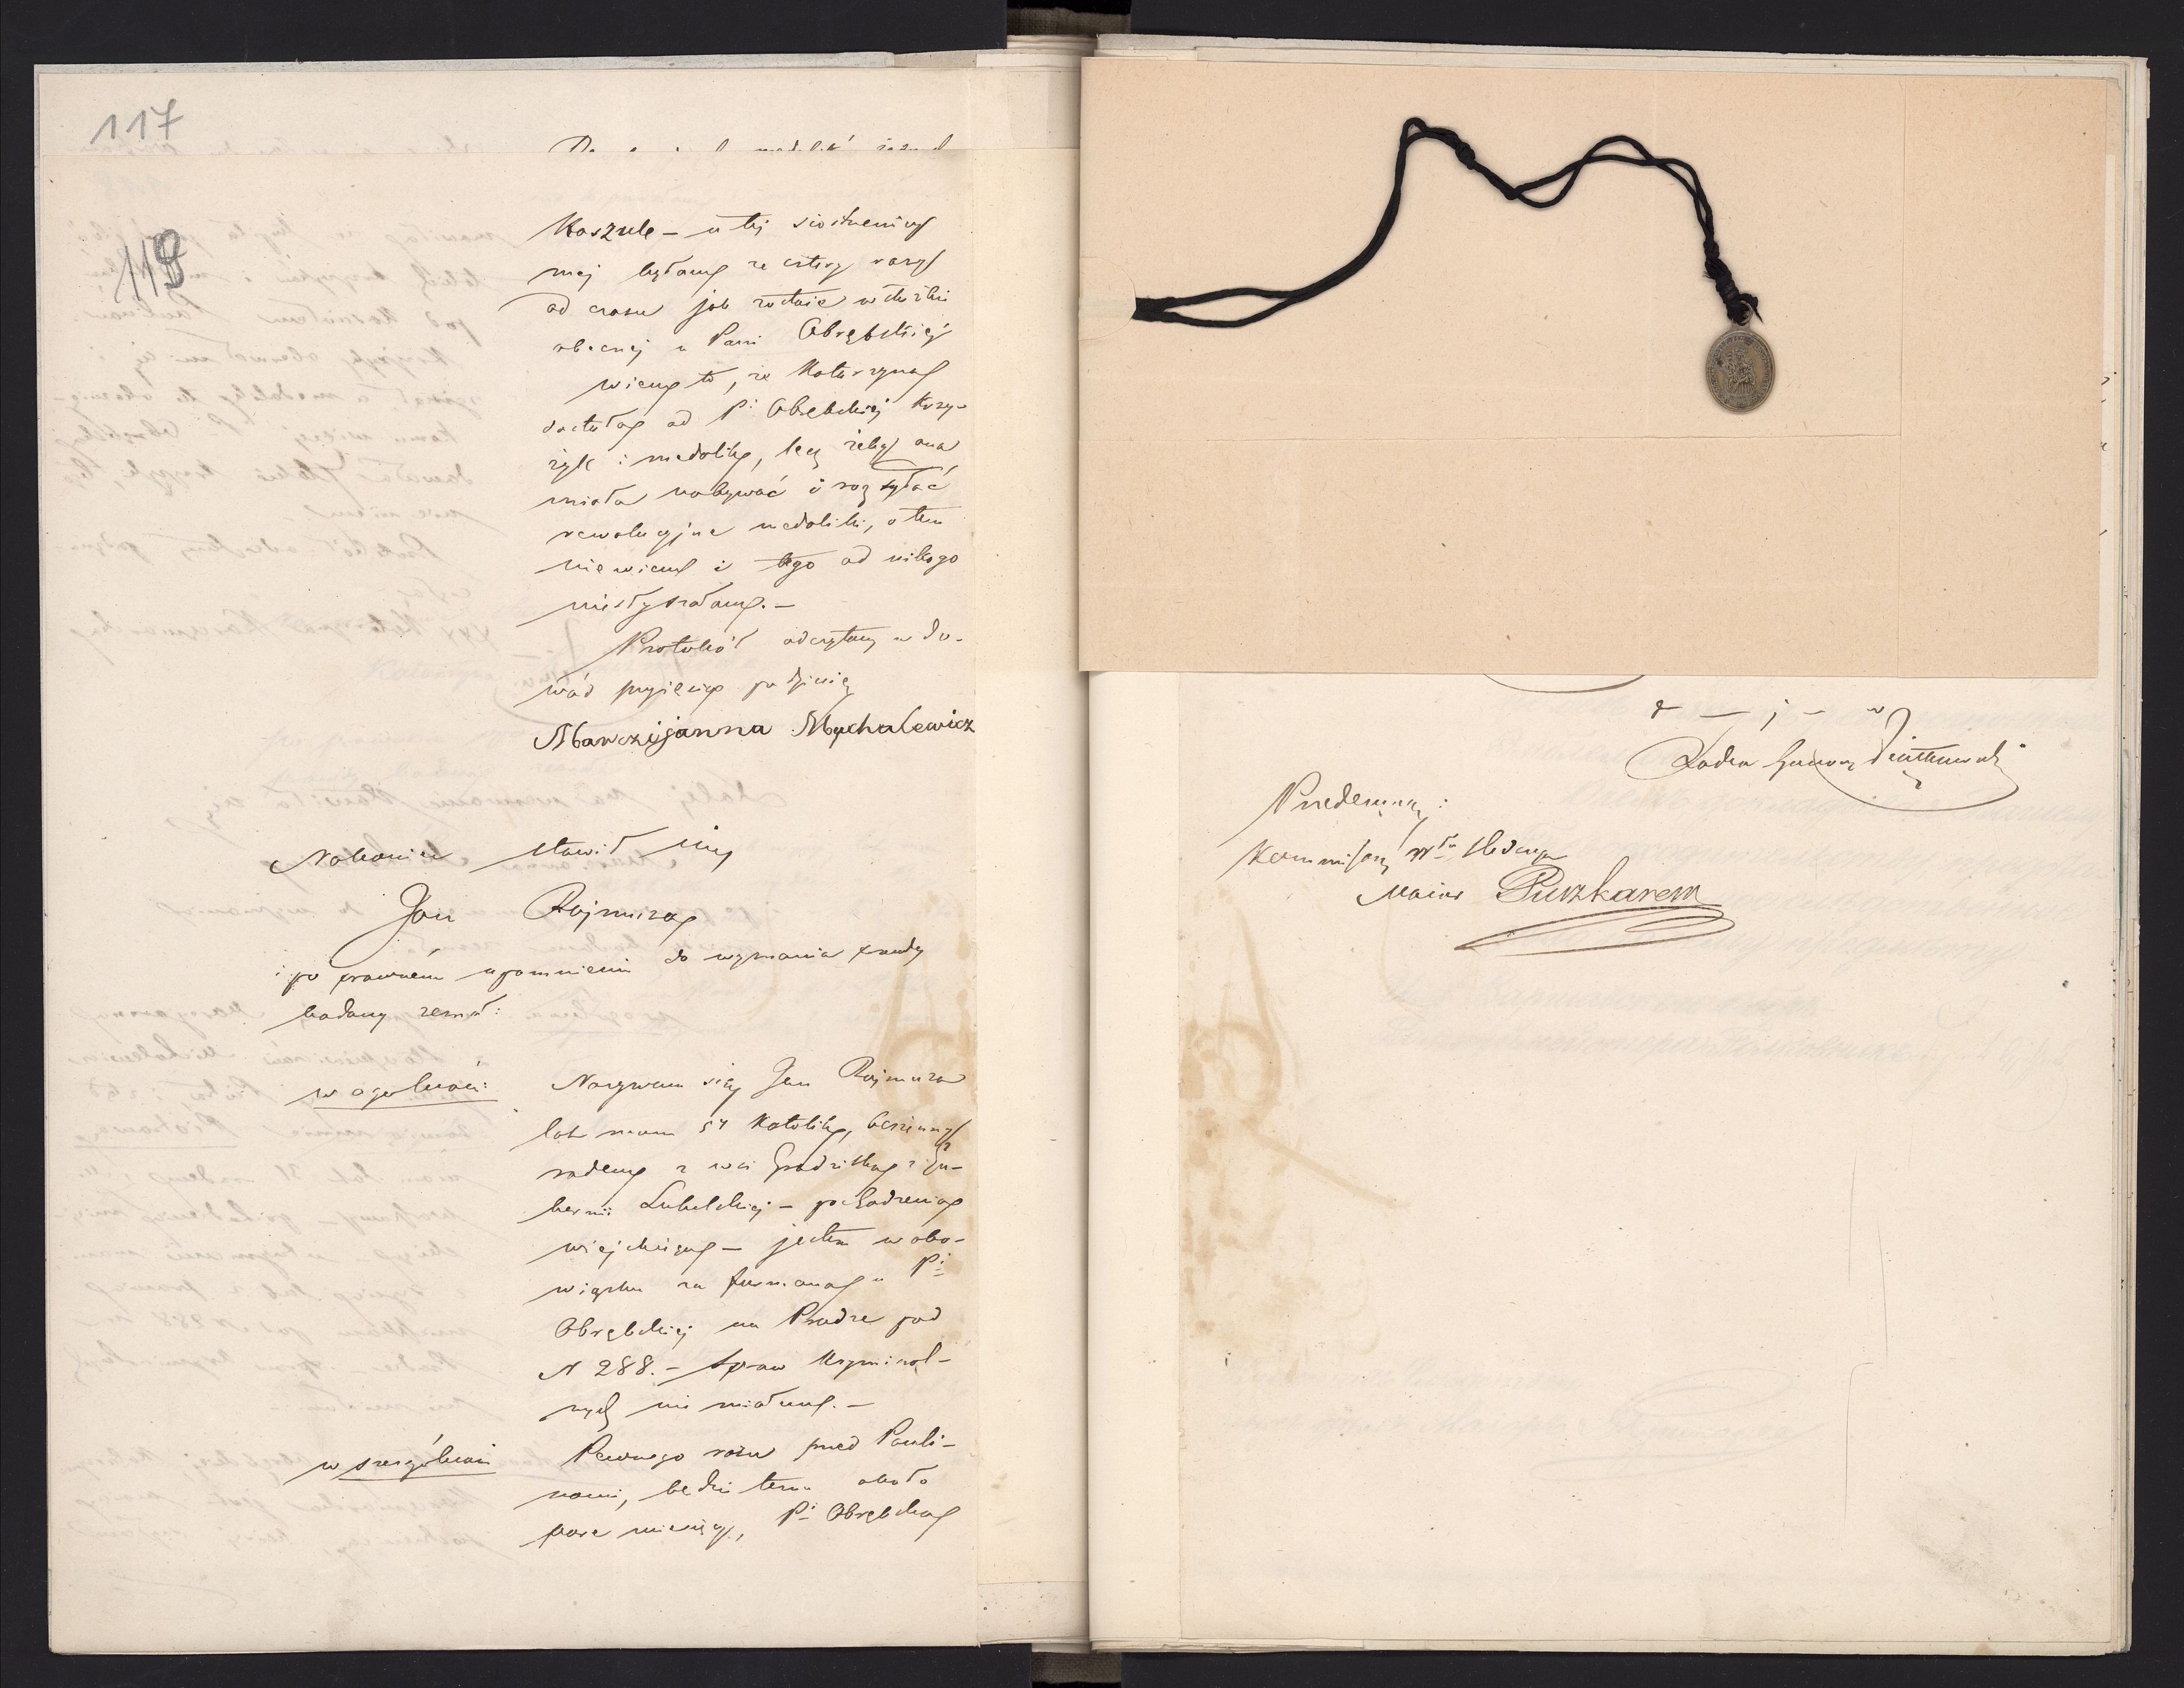 117
119
Koszule – u tej siostrzenicy
mej byłam ze cztery razy
od czasu jak zostaje w służbie
obecnej u Pani Obrębskiej
wiem to, że Katarzyna
dostała od P: Obrębskiej Krzy-
żyk i medalik, lecz żeby ona
miała nabywać i rozsyłać
rewolucyjne medaliki, o tem
nie wiem i tego od nikogo
niesłyszałam. –
Protokół odczytany w do-
wód przyjęcia podpisuję
Marczyjanna Mychalewicz
Nakoniec stawił się
Jan Rojmuza
i po prawném upomnieniu do wyznania prawdy
badany zeznał:
w ogólności:
Nazywam się Jan Rojmuza
lat mam 54 Katolik, bezżenny
rodem z wsi Grodziska z Gu-
bernii Lubelskiej – pochodzenia
wiejskiego – jestem w obo-
wiązku za furmana u P:
Obrębskiej na Pradze pod
N 288. – Spraw Kryminal-
nych nie miałem. –
w szczególności
Pewnego razu przed Pauli-
nami, będzie temu około
parę miesięcy, P: Obrębska
Radca Honor
Kommisarz
Maior Puzkarew